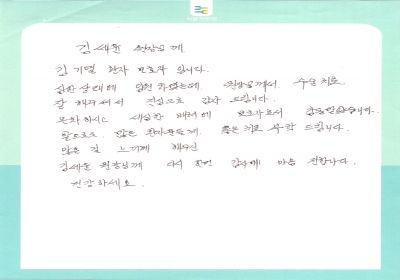 김세윤 원장님께
김기열 환자 보호자 입니다.
심한 상태에 입원 하였는데 원장님께서 수술 치료
잘 해주셔서 진심으로 감사 드립니다.
하시고 세심한 배려에 보호자로서 감동받았습니다.
앞으로도 많은 환자분들께 좋은 치료 부탁 드립니다.
많은 걸 느끼게 해주신
김세윤 원장님께 다시 한번 감사에 마음 전합니다.
건강하세요.